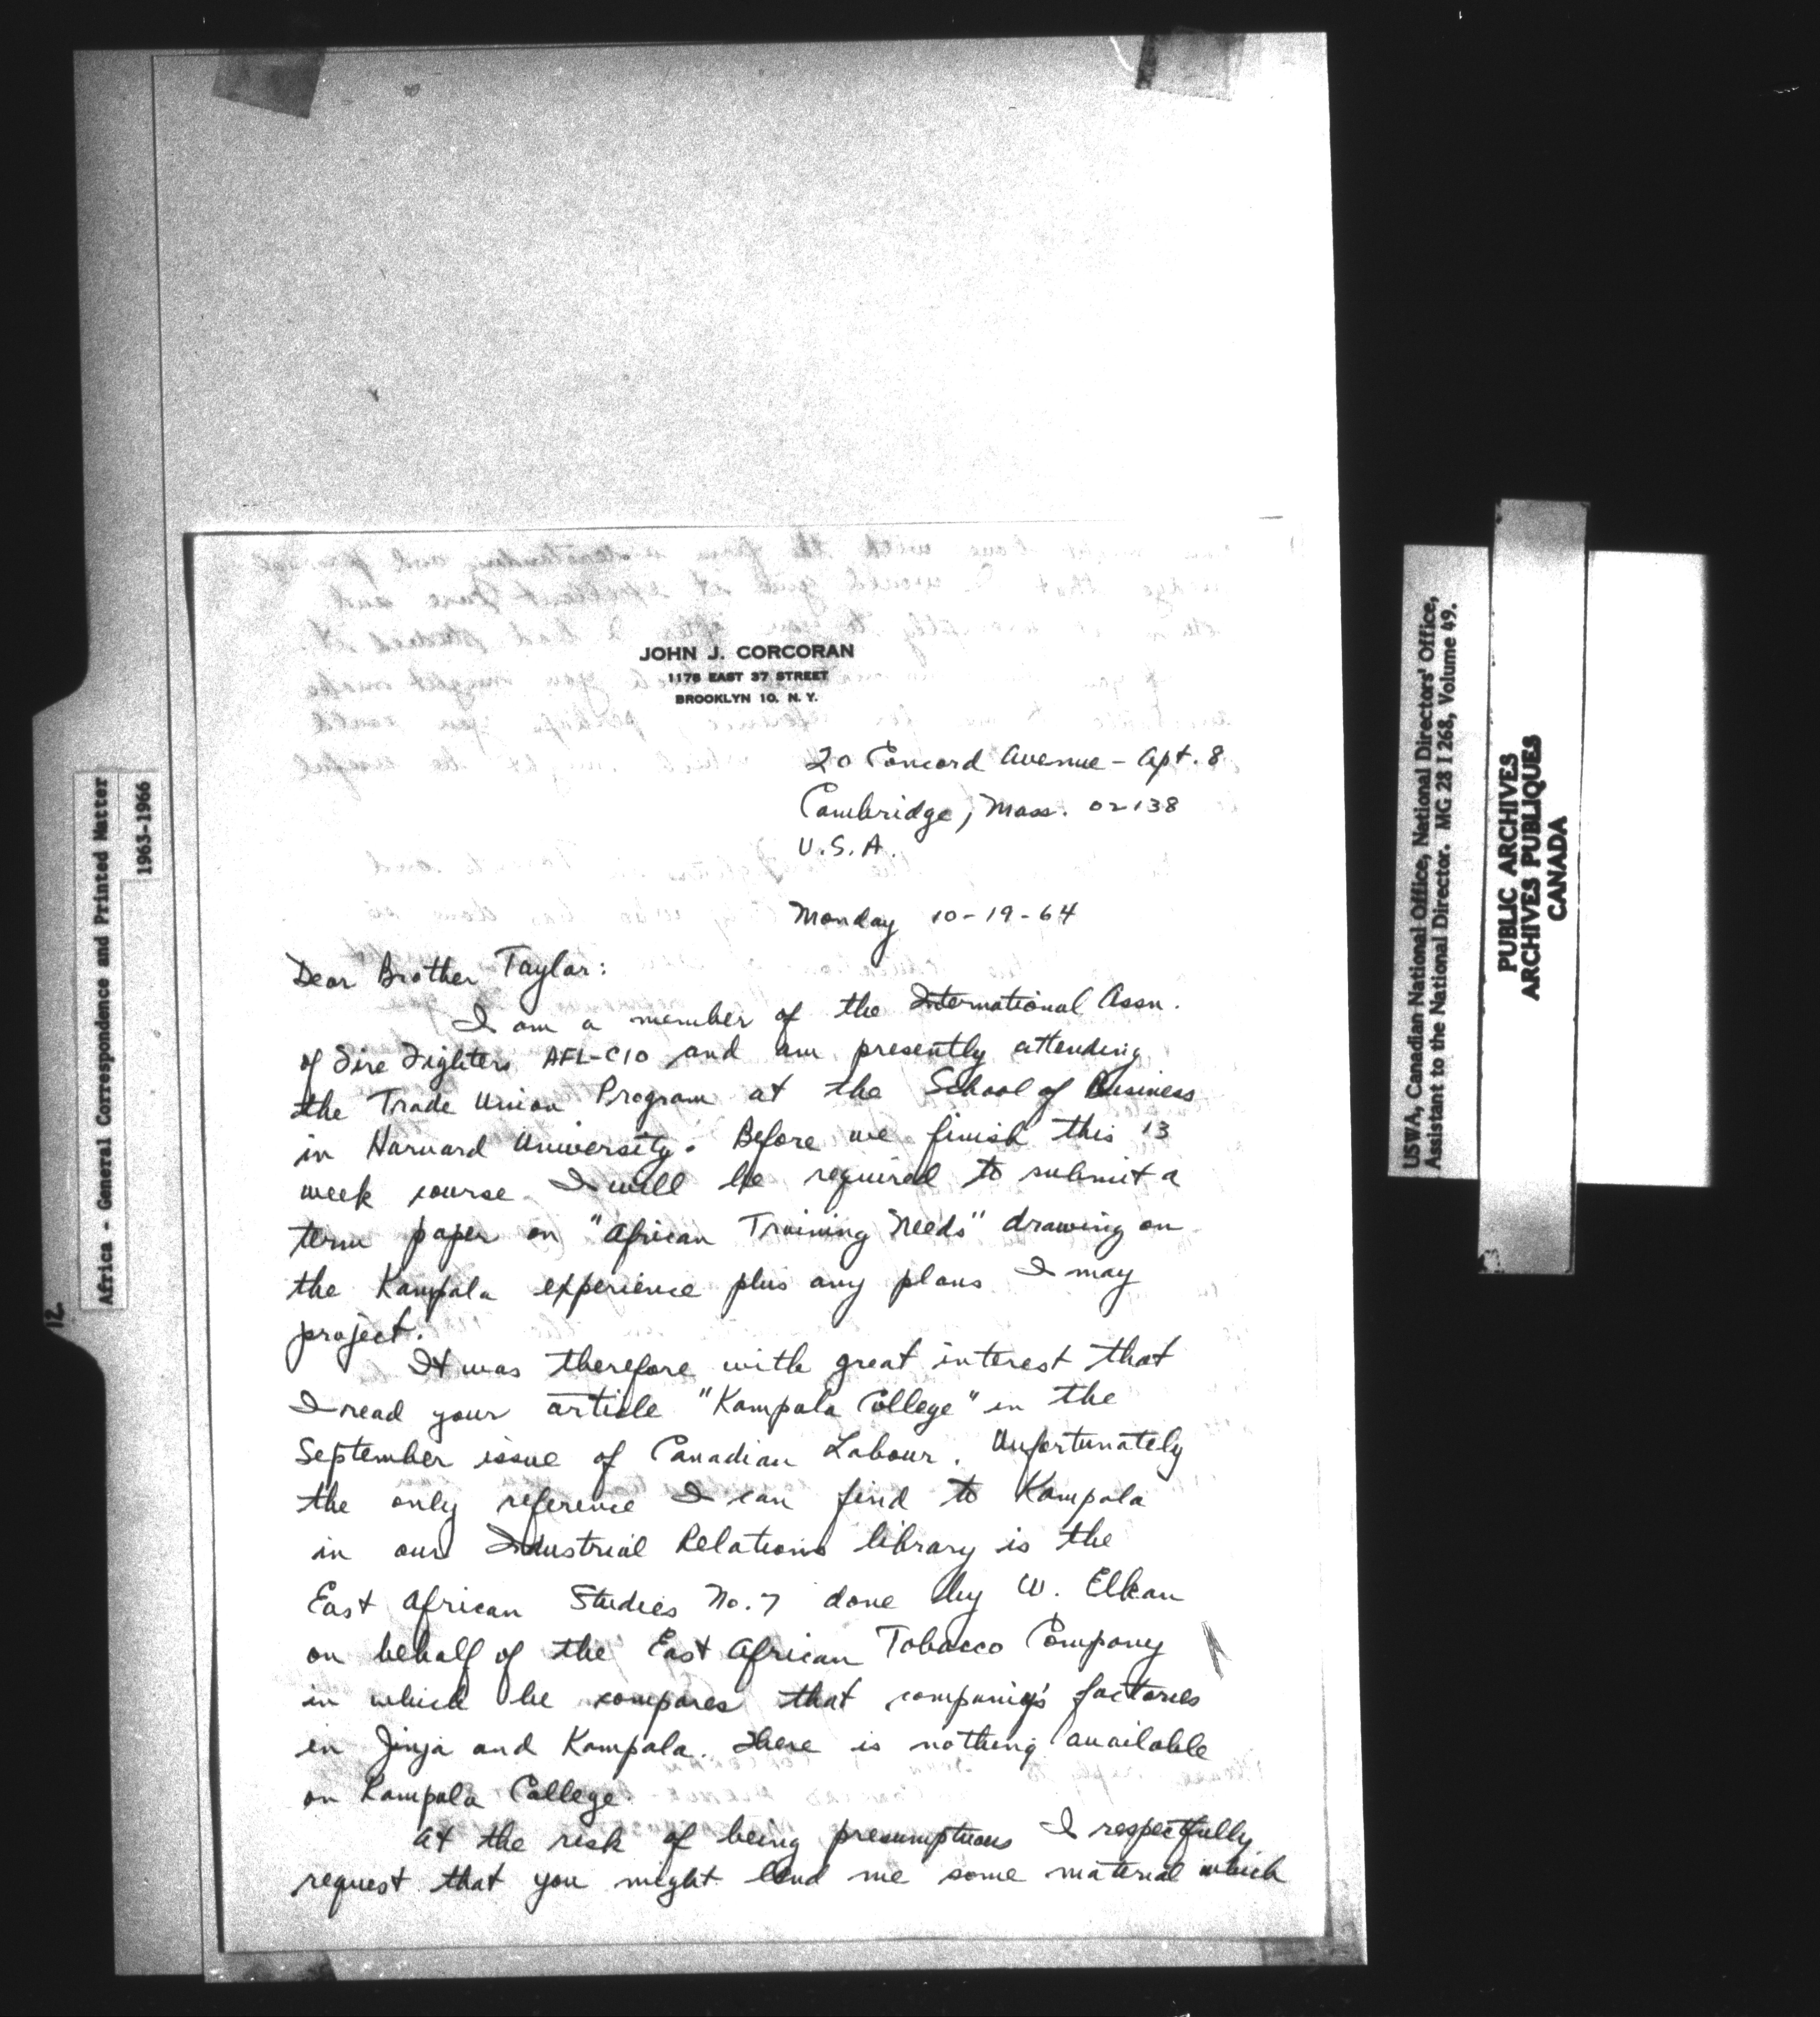 JOHN J. CORCORAN
1178 EAST 37 STREET
BROOKLYN 10, N. Y.
20 Concord Avenue - Apt. 8
Cambridge, Mass. 02138
U.S.A.
Monday 10-19-64
Dear Brother Taylor:
I am a member of the International Assn.
of Fire Fighters AFL-CIO and am presently attending
the Trade Union Program at the School of Business
in Harvard University. Before we finish this 13
week course I will be required to submit a
term paper on "African Training Needs" drawing on
the Kampala experience plus any plans I may
project.
It was therefore with great interest that
I read your article "Kampala College" in the
September issue of Canadian Labour. Unfortunately
the only reference I can find to Kampala
in our Industrial Relations library is the
East African Studies No. 7 done by W. Elkan
on behalf of the East African Tobacco Company
in which he compares that company's factories
in Jinja and Kampala. There is nothing available
on Kampala College.
At the risk of being presumptuous I respectfully
request that you might lend me some material which
Africa - General Correspondence and Printed Matter
1963-1966
12
USWA, Canadian National Office, National Directors' Office,
Assistant to the National Director. MG 28 I 268, Volume 49.
PUBLIC ARCHIVES
ARCHIVES PUBLIQUES
CANADA